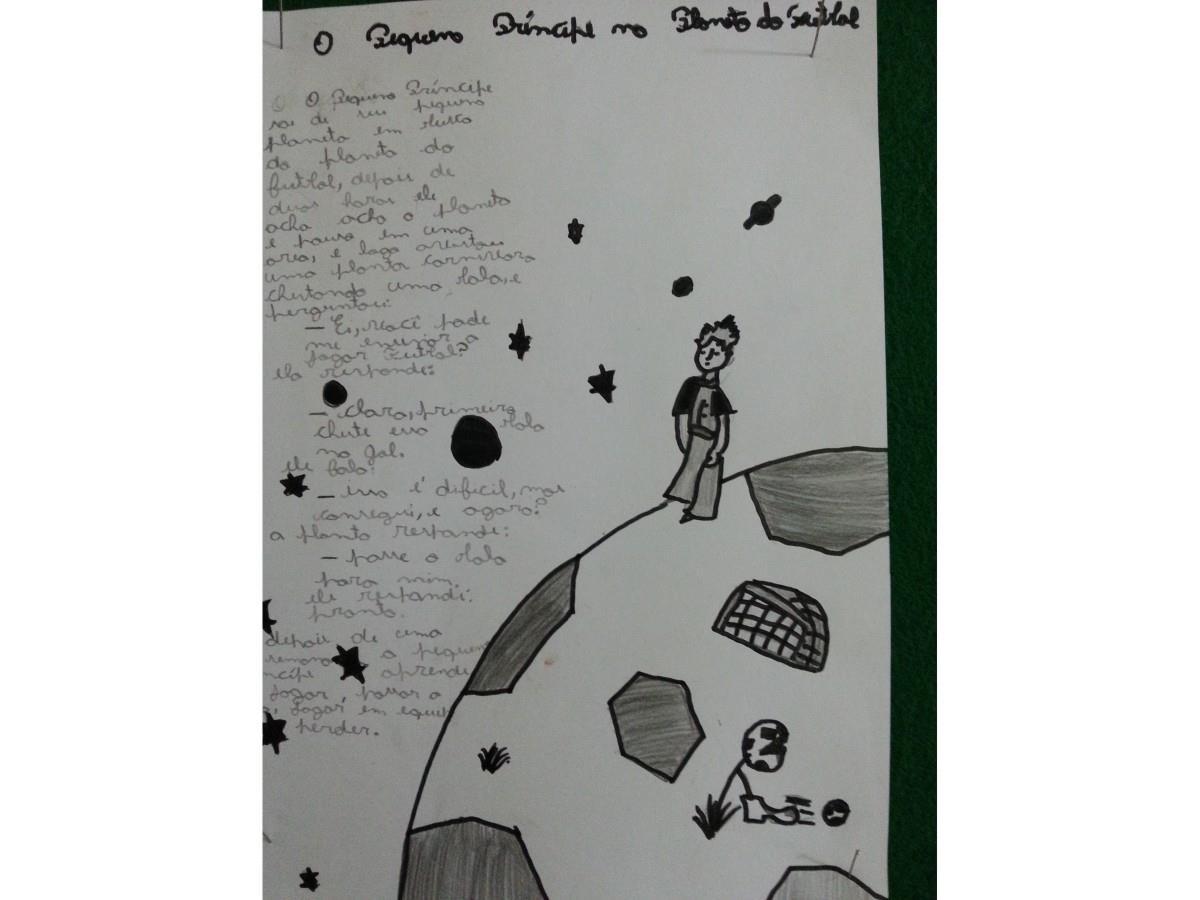 O Pequeno Príncipe no Planeta do Futbol
O Pequeno Príncipe
sai de seu pequeno
planeta em busca
do planeta do
futbol, depois de
duas horas ele
acha acha o planeta
e pousa em uma
area, e logo avistou
uma planta carnivora
chutando uma bola, e
perguntou:
— Ei, você pode
me ensinar a
jogar Futbol?
ela responde:
— claro, primeiro
chute essa bola
no gol.
ele fala:
— isso é dificil, mas
consegui, e agora?
a planta responde:
— passe a bola
para mim.
ele respondi:
pronto.
depois de uma
semana o pequen
ncípe aprende
jogar, passar a
jogar em equip
perder.